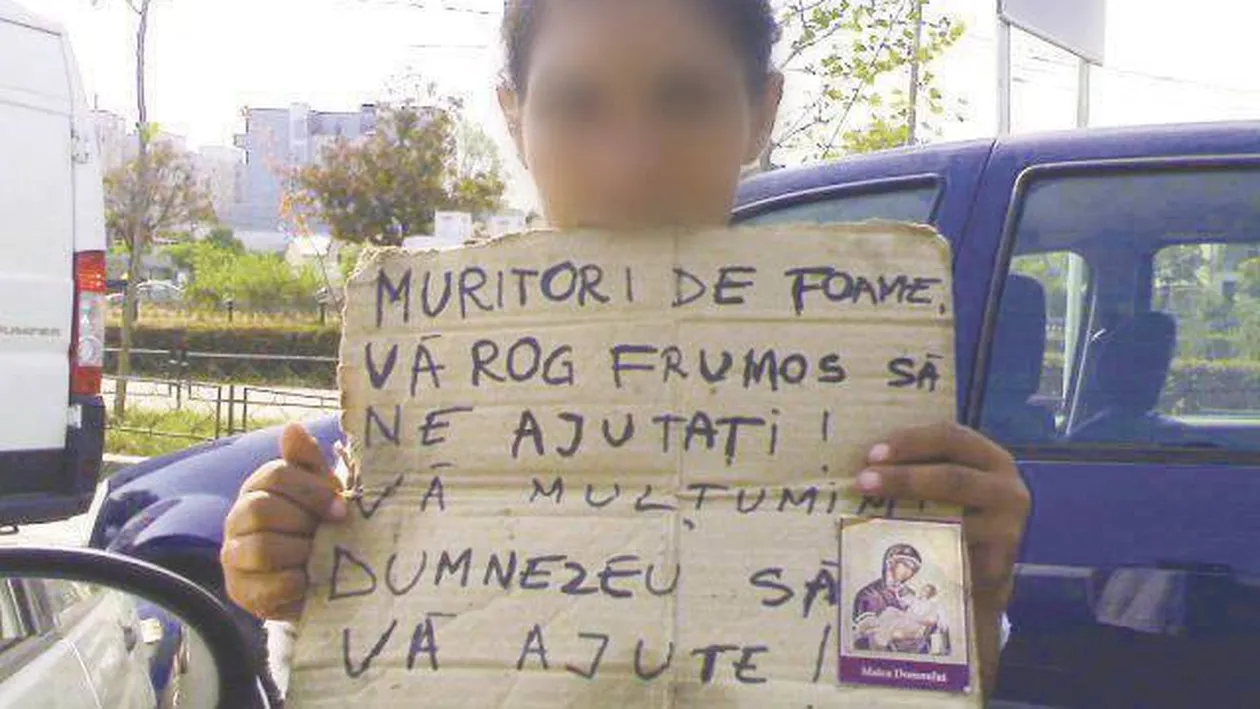 MURITORI DE FOAME,
VĂ ROG FRUMOS SĂ
NE AJUTAȚI !
VĂ MULȚUMIM !
DUMNEZEU SĂ
VĂ AJUTE !
Maica Domnului